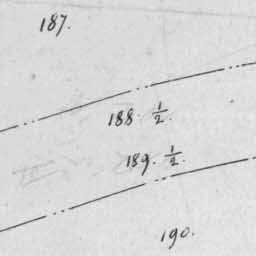 187.
188. ½
189. ½
190.